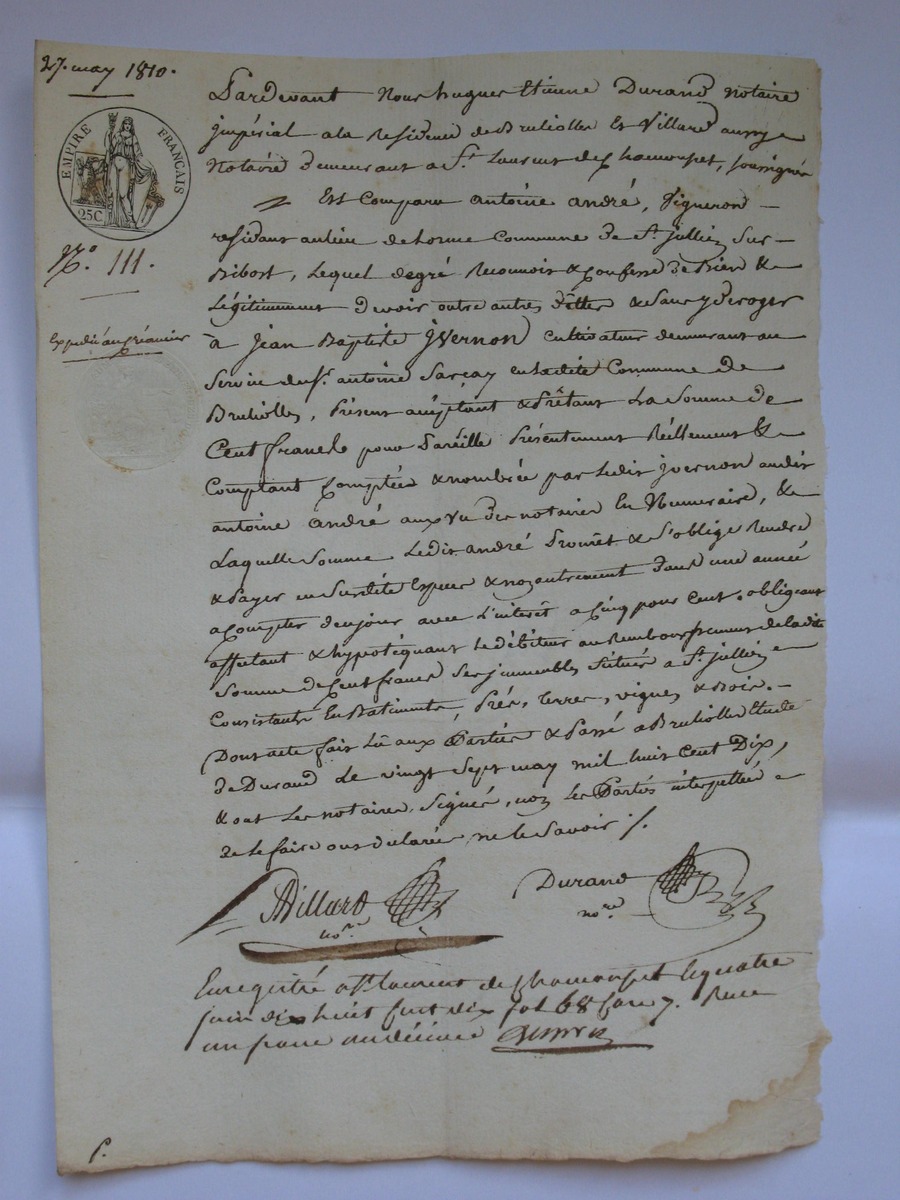 27. may 1810.
EMPIRE FRANÇAIS
25C
N.o 111.
Expedié au créancier
Pardevant Nous hugues Etienne Durand Notaire
jmpérial a la Residence de Bruliolles Et Villard aussy
Notaire demeurant a St. Laurent de Chamousset, soussignés
Est Comparu antoine andré, Vigneron
residant au lieu de Lorme Commune de St. jullien Sur
Bibost, Lequel de gré Reconnoit & Confesse De Bien &
Légitimement devoir outre autres dettes & Sans y deroger
à Jean Baptiste jvernon cultivateur demeurant au
Service du Sr. antoine Sarcay en ladite Commune De
Brulioles, Présent acceptant & Prêtant La Somme De
Cent francs pour Pareille Présentement Réellement &
Comptant Comptée & nombrée par Ledit jvernon audit
antoine andré aux Vu des notaires En Numeraire, &
Laquelle Somme Ledit andré Promet & S'oblige Rendre
& Payer en Susdite Espece & non autrement dans une année
a Compter de ce jour avec L'interêt a Cinq pour Cent. obligeant
affectant & hypotéquant le débiteur au Remboursement de ladite
Somme de Cent francs Ses jmmeubles Situés a St. jullien
Consistants En Batiments, Prés, terres, vignes & Bois.
Dont acte fait Lû aux Parties & Passé a Brulioles Etude
de Durand Le vingt Sept may mil huit Cent Dix,
& ont Les notaires Signés, non Les Parties interpellées
de le faire ont declarées ne le Savoir ./.
Villard Durand
no.re no.re
Enregistré a St. laurent de Chamousset le quatre
juin dix huit cent dix fol 68 Case 7. Recu
un franc un décime